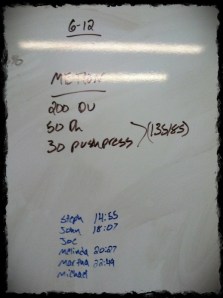 6-12
METCON
200 DU
50 DL
30 push press (135/85)
Steph 14:55
John 18:07
Joe
Melinda 20:27
Martha 22:49
Michael